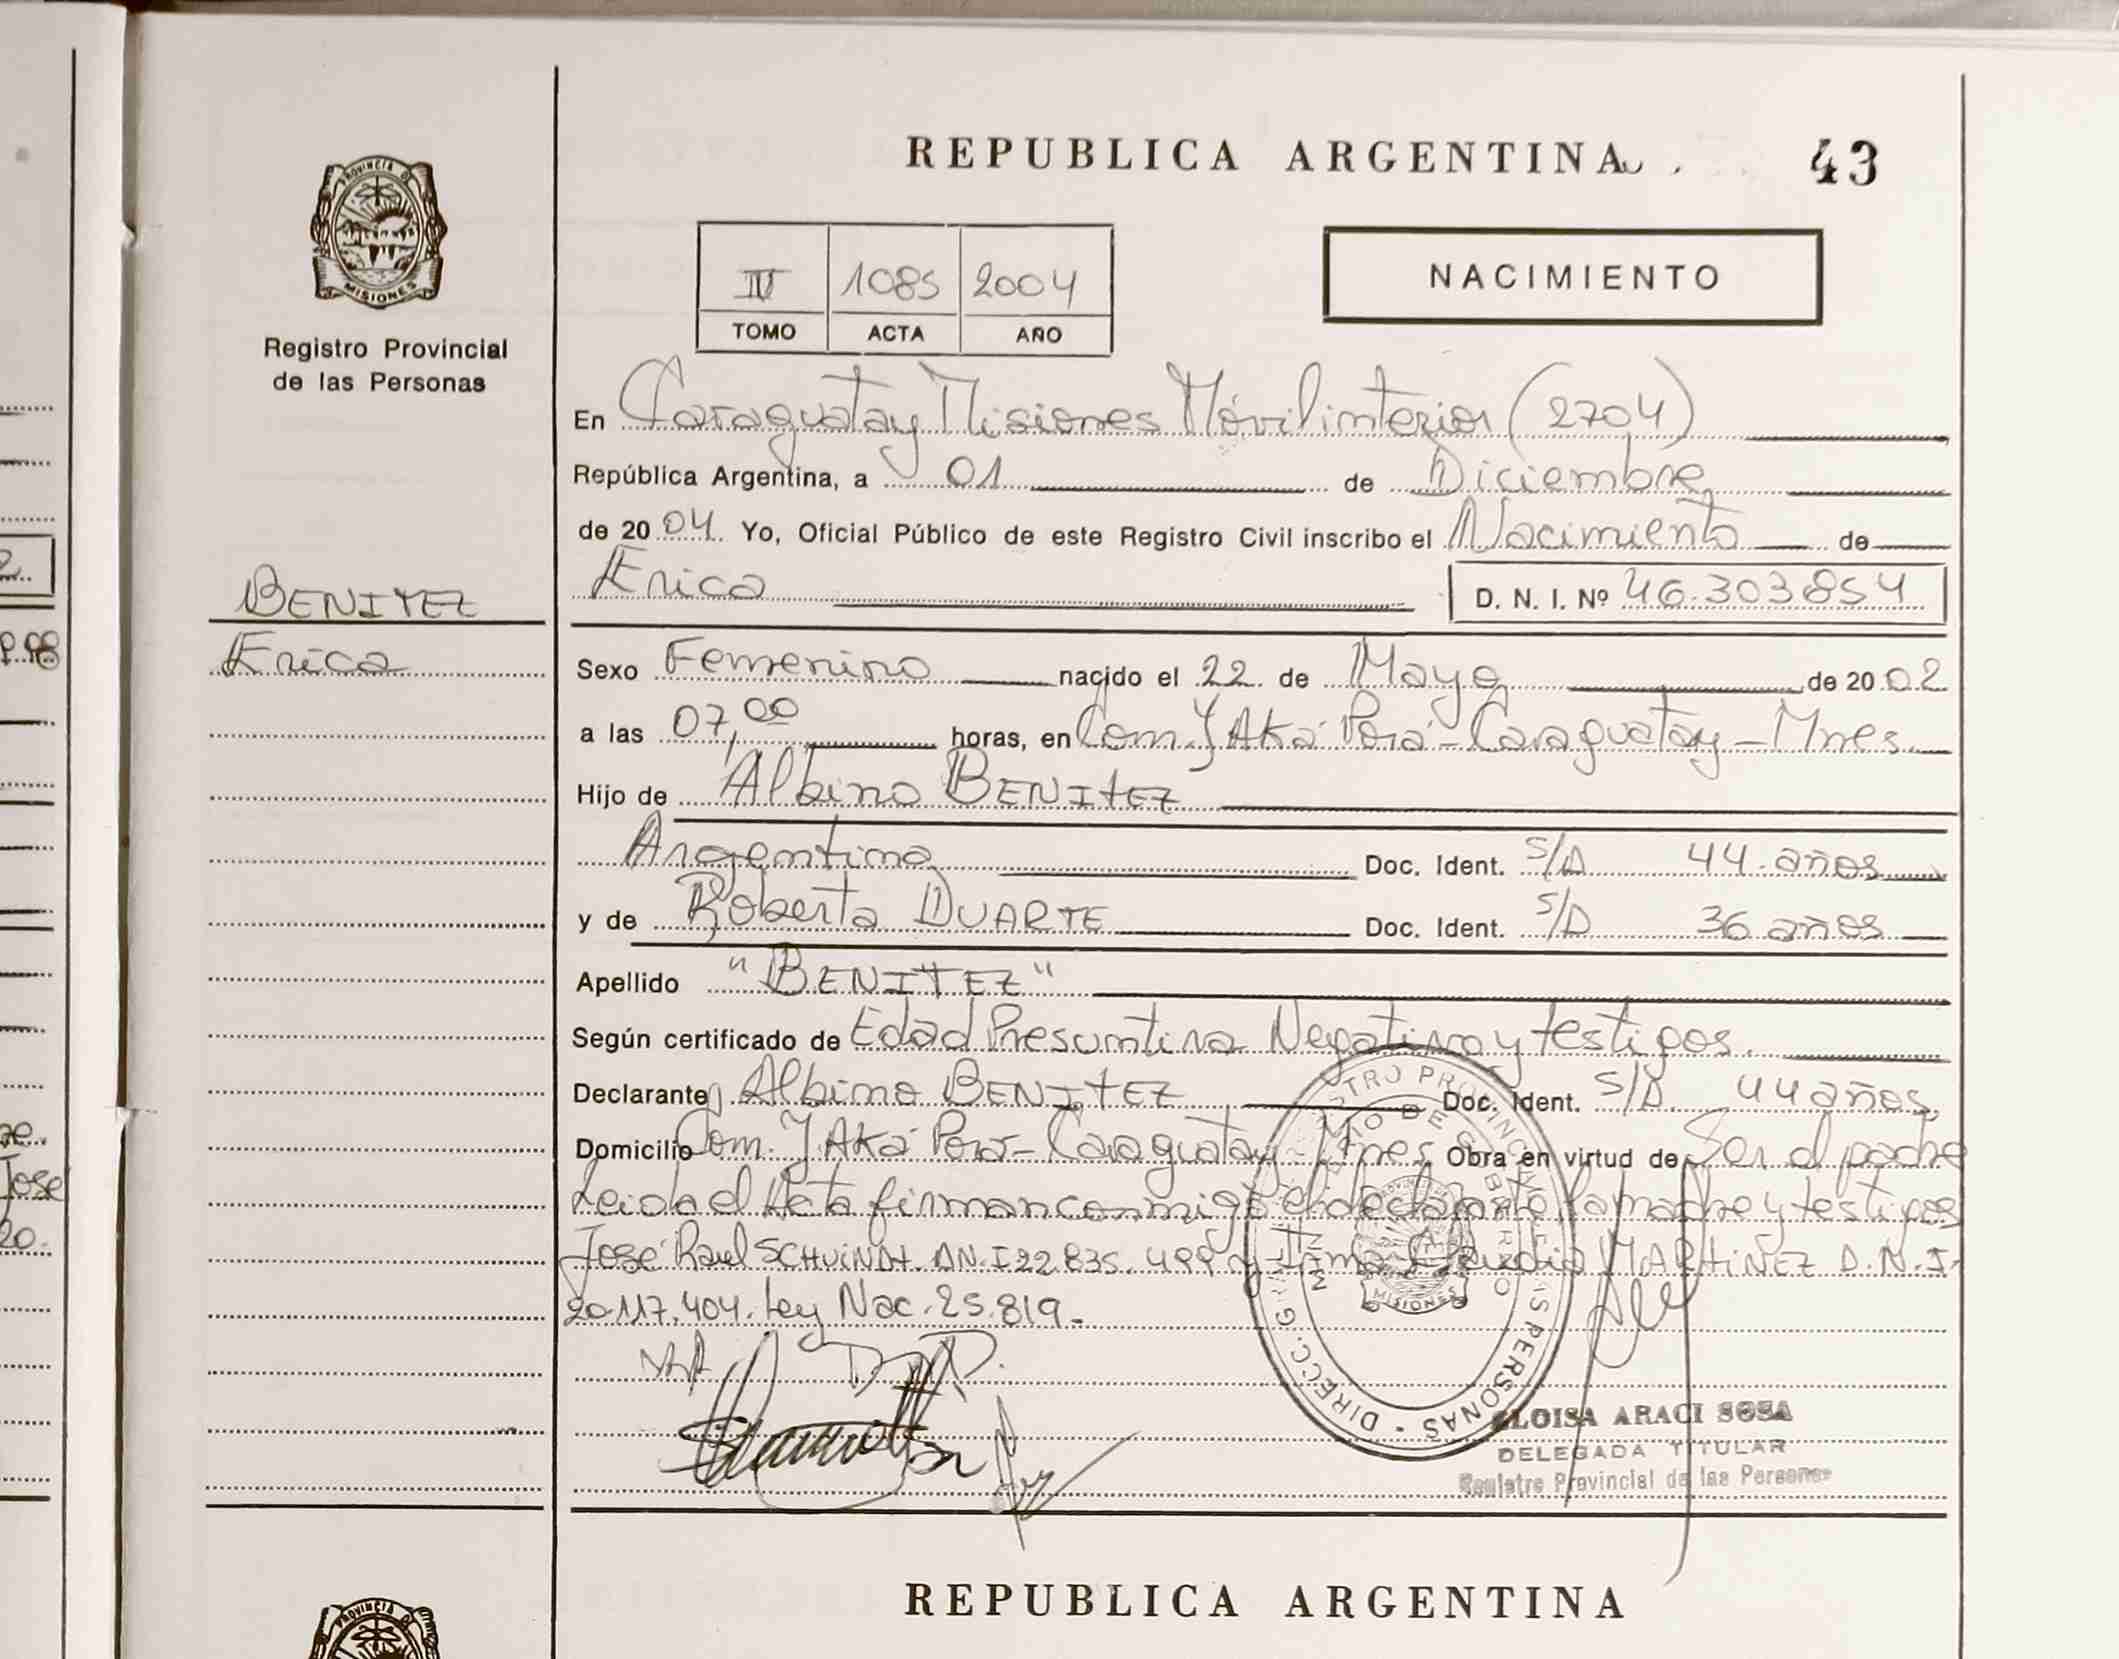 REPUBLICA ARGENTINA
43
PROVINCIA DE
MISIONES
Registro Provincial
de las Personas
IV 1085 2004
TOMO ACTA AÑO
NACIMIENTO
En Caraguatay Misiones Móvil interior (2704)
República Argentina, a 01 de Diciembre
de 2004. Yo, Oficial Público de este Registro Civil inscribo el Nacimiento de
Erica D. N. I. Nº 46.303854
BENITEZ
Erica
Sexo Femenino nacido el 22 de Mayo de 2002
a las 07,00 horas, en Com. YAKá Porá - Caraguatay - Mnes.
Hijo de Albino BENITEZ
Argentino Doc. Ident. S/D 44 años
y de Roberta DUARTE Doc. Ident. S/D 36 años
Apellido "BENITEZ"
Según certificado de Edad Presuntiva Negativo y testigos.
Declarante Albino BENITEZ Doc. Ident. S/D. 44 años,
Domicilio Com. YAKá Porá - Caraguatay - Mnes Obra en virtud de Ser el padre
Leida el Acta firman conmigo el declarante, la madre y testigos
José Raul SCHUiNDt. D.N.I 22.835.499 y Irma Claudia MARTiNEZ D.N.I.
20.117.404. Ley Nac. 25.819.-
ELOISA ARACI SOSA
DELEGADA TITULAR
Registro Provincial de las Personas
REPUBLICA ARGENTINA
PROVINCIA DE
2.
P.98
José
20.